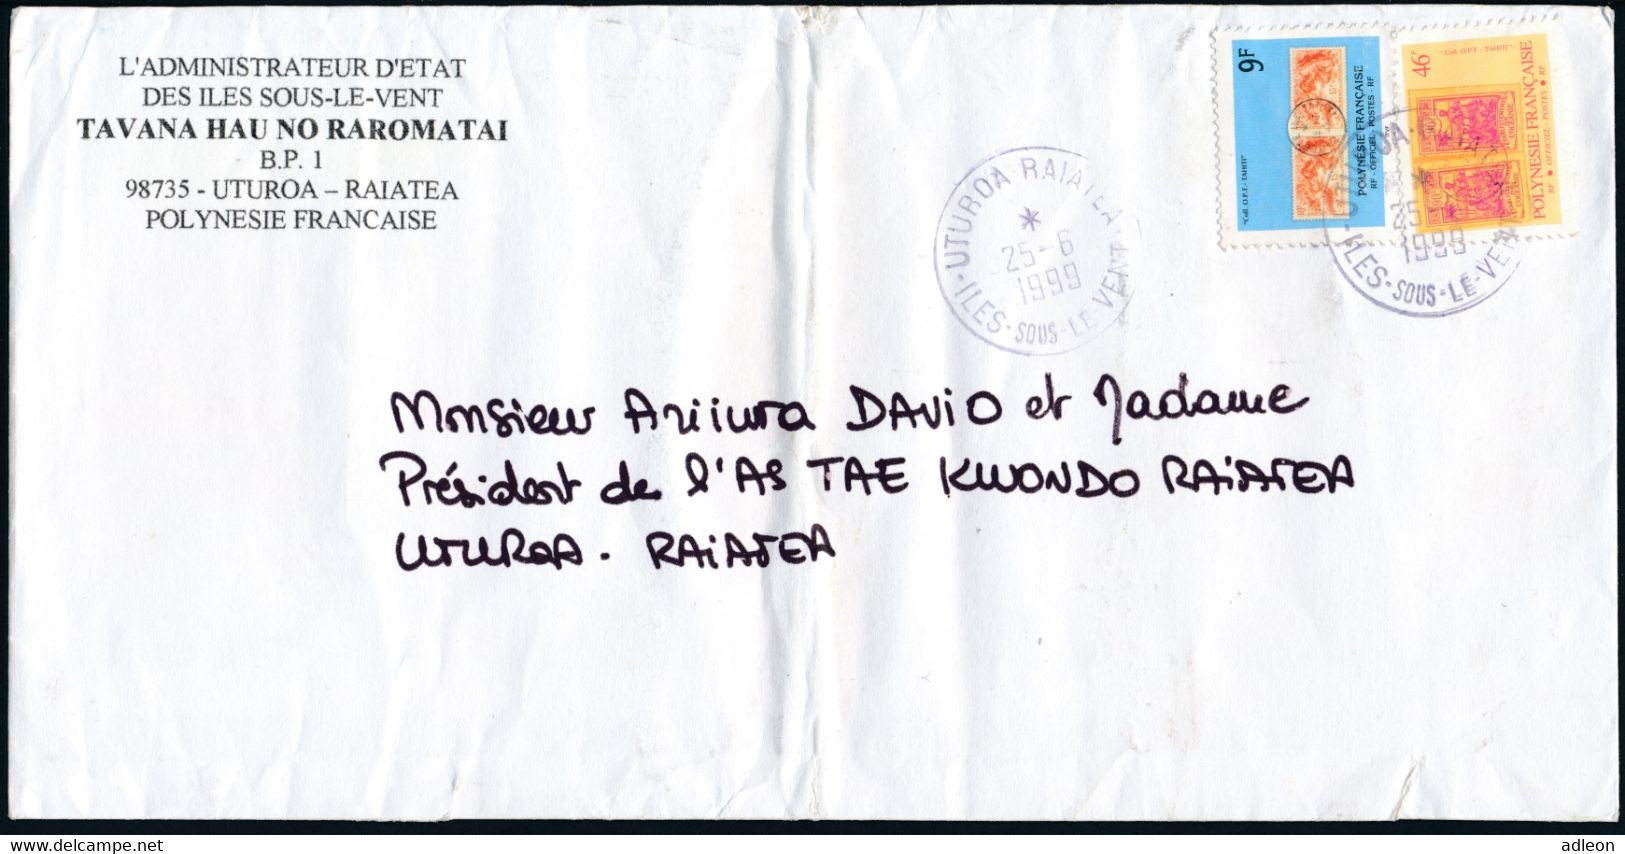 L'ADMINISTRATEUR D'ETAT
DES ILES SOUS-LE-VENT
TAVANA HAU NO RAROMATAI
B.P. 1
98735 - UTUROA – RAIATEA
POLYNESIE FRANCAISE
9F
"Coll. O.P.T. - TAHITI"
POLYNÉSIE FRANÇAISE
RF - OFFICIEL - POSTES - RF
46F
"Coll. O.P.T. - TAHITI"
POLYNÉSIE FRANÇAISE
RF • OFFICIEL - POSTES • RF
UTUROA·RAIATEA
*
25-6
1999
·ILES-SOUS-LE-VENT
25
1999
·ILES-SOUS-LE-VE
Monsieur Ariiura DAVIO et Madame
Président de l'AS TAE KWONDO RAiATEA
UTUROA - RAiATEA
www.delcampe.net
adleon